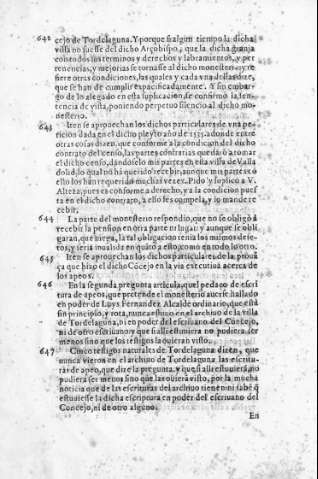 642 cejo de Tordelaguna. Y porque si algun tiempo la dicha
villa no fuesse del dicho Arçobispo, que la dicha granja
con todos sus terminos y derechos y labramientos, y per
tenencias, y mejorias se tornasse al dicho monesterio, y re
fiere otras condiciones, las quales y cada vna dellas dize,
que se han de cumplir especificadamente. Y sin embar-
go de lo alegado en esta suplicacion se confirmò la sen-
tencia de vista, poniendo perpetuo silencio al dicho mo-
nesterio.
643 Iten se aprouechan los dichos particulares de vna pe-
ticion dada en el dicho pleyto año de 1535. adonde entre
otras cosas dizen, que conforme a la condicion del dicho
contrato del censo, las partes contrarias quedarō a tomar
el dicho censo, dandoselo mis partes en esta villa de Valla
dolid, lo qual no hā querido recebir, aunque mis partes cō
ello los han requerido muchas vezes. Pido y suplico a V.
Alteza, pues es conforme a derecho, y a la condicion pues
ta en el dicho contrato, a ello les compela, y lo mande re
cebir.
644 La parte del monesterio respondio, que no se obligò a
recebir la pension en otra parte ni lugar, y aunque se obli
garan, que niega, la tal obligacion tenia los mismos defe-
tos, y seria inualida en quāto a esto, como en todo lo otro.
645 Iten se aprouechan los dichos particulares de la prouā
ça que hizo el dicho Cōcejo en la via executiua acerca de
los apeos.
646 En la segunda pregunta articula, que l pedaço de escri
tura de apeos, que pretende el monesterio auerse hallado
en poder de Luys Fernandez Alcalde ordinario, que està
sin principio, y rota, nunca estuuo en el archiuo de la villa
de Tordelaguna, ni en poder del escriuano del Concejo,
ni de otro escriuano y que si alli estuuiera no pudiera ser
menos sino que los testigos la quieran visto.
647 Cinco testigos naturales de Tordelaguna dizen, que
nunca vieron en el archiuo de Tordelaguna las escritu-
ras de apeo, que dize la pregunta, y que si alla estuuierā, no
pudiera ser menos sino que las ouierā visto, por la mucha
noticia que de las escrituras del archiuo tienen ni sabē q̄
estuuiesse la dicha escriptura en poder del escriuano del
Concejo, ni de otro alguno.
En